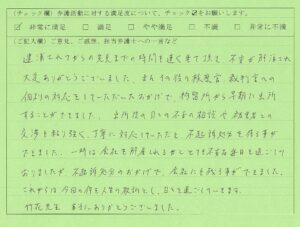 (チェック欄) 弁護活動に対する満足度について、チェック☑をお願いします。
☑ 非常に満足 □ 満足 □ やや満足 □ 不満 □ 非常に不満
(ご記入欄) ご意見、ご感想、担当弁護士への一言など
逮捕されてからの先生までの時間を速く来て頂き 不安が解消され
大変ありがとうございました。またその後の検察官、裁判官への
働きかけの対応をしていただいたおかげで、拘留所から早期に出所
することができました。出所後の日々の不安の相談や被害者との
交渉を粘り強く、丁寧に対応していただき不起訴処分を得る事が
できました。一時は会社を解雇されるかもととても不安な毎日を過ごして
おりましたが、不起訴処分のおかげで、会社にも残る事ができました。
これからは今回の件を人生の教訓とし、日々を過ごしていきます。
竹花先生 本当にありがとうございました。